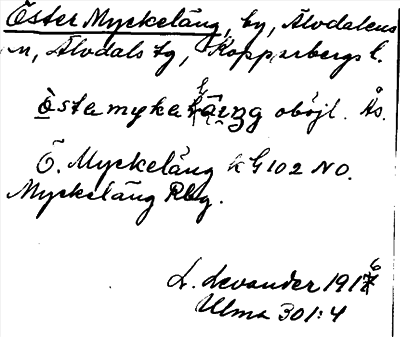 Öster Myckeläng, by, Älvdalens
sn, Älvdals tg, Kopparbergs l.
östa myka oböjl. Ås.
Ö. Myckeläng k G 102 NO.
Myckeläng Rbg.
L. Levander 1916
Ulma 301:4